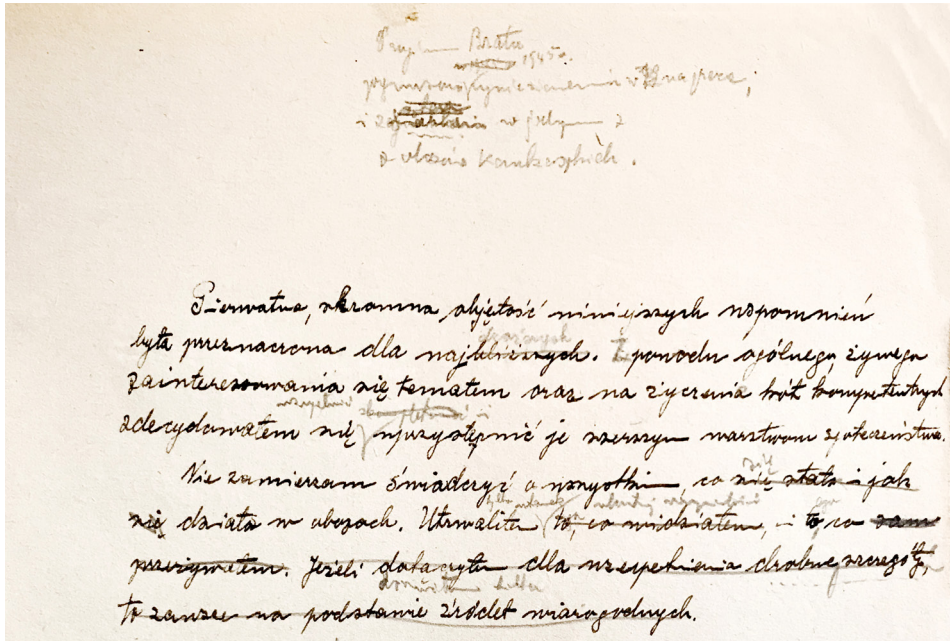 Brata
1945 r.
i w jednym z
z obozów
Pierwotna, skromna objętość niniejszych wspomnień
droższych
była przeznaczona dla najbliższych. Z powodu ogólnego żywego
zainteresowania się tematem oraz na życzenia kół kompetentnych
uzupełnić i
zdecydowałem się uprzystępnić je szerszym warstwom społeczeństwa.
Nie zamierzam świadczyć o wszystkim, co się stało i jak
się działo w obozach. Utrwaliłem to, co widziałem, i to, co sam
przeżywałem. Jeżeli dołączyłem dla uzupełnienia drobne szczegóły,
to zawsze na podstawie źródeł wiarogodnych.